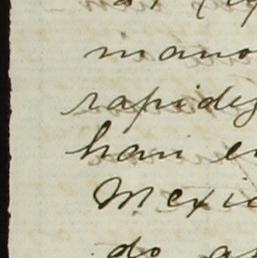 mano
rapidez
han en
Mexic
do